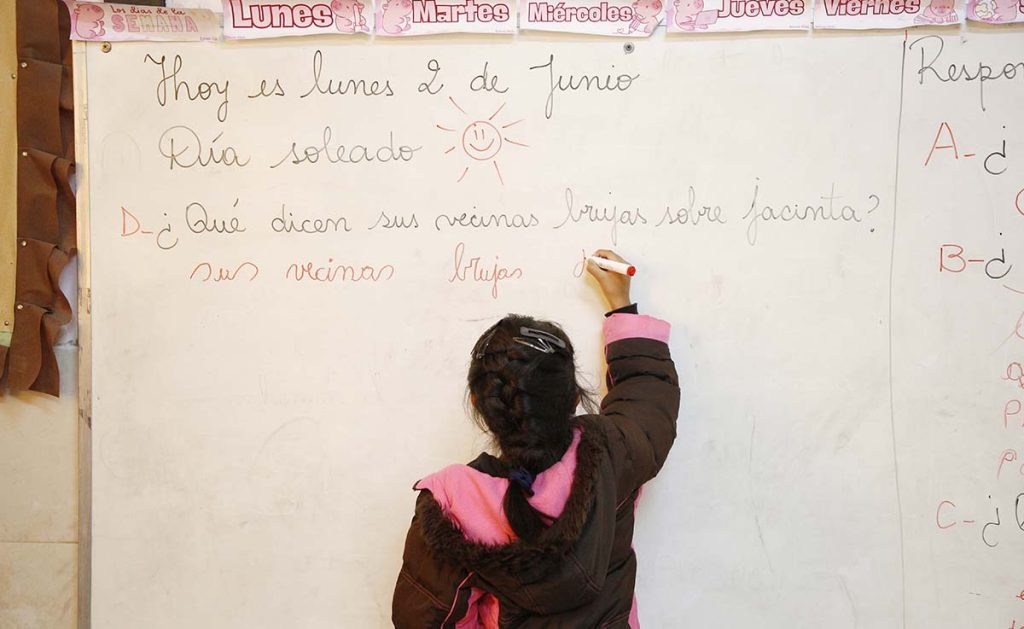 Los días de la SEMANA
Lunes
Martes
Miércoles
Jueves
Viernes
Hoy es lunes 2 de Junio
Día soleado
D-¿Qué dicen sus vecinas brujas sobre Jacinta?
sus vecinas brujas
Respon
A-¿
B-¿
C-¿